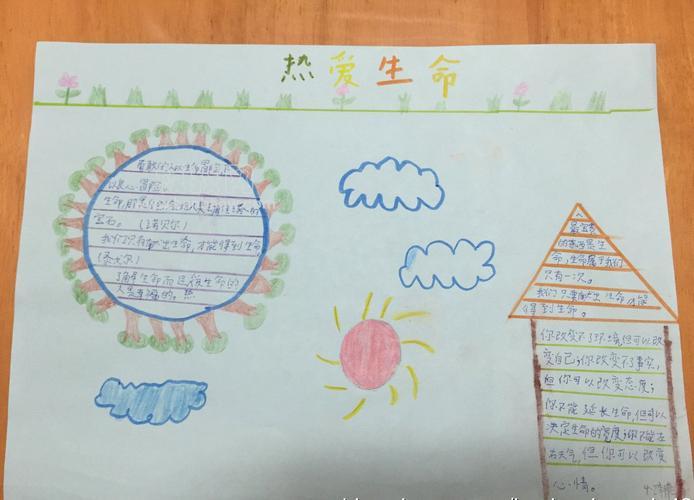 热爱生命
勇敢的人以生命冒险
以良心冒险。
生命,那是自然
宝石。(诺贝尔)
我们只有献出生命,才能得到生命
人是幸福的。
最宝贵
的东西是生
命,生命属于我们
只有一次。
我们只有献出生命才能
得到生命。
你改变不了环境,但可以改
变自己;你改变不了事实,
但你可以改变态度;
你不能延长生命,但可以
决定生命的宽度;你不能左
右天气,但你可以改变
心情。